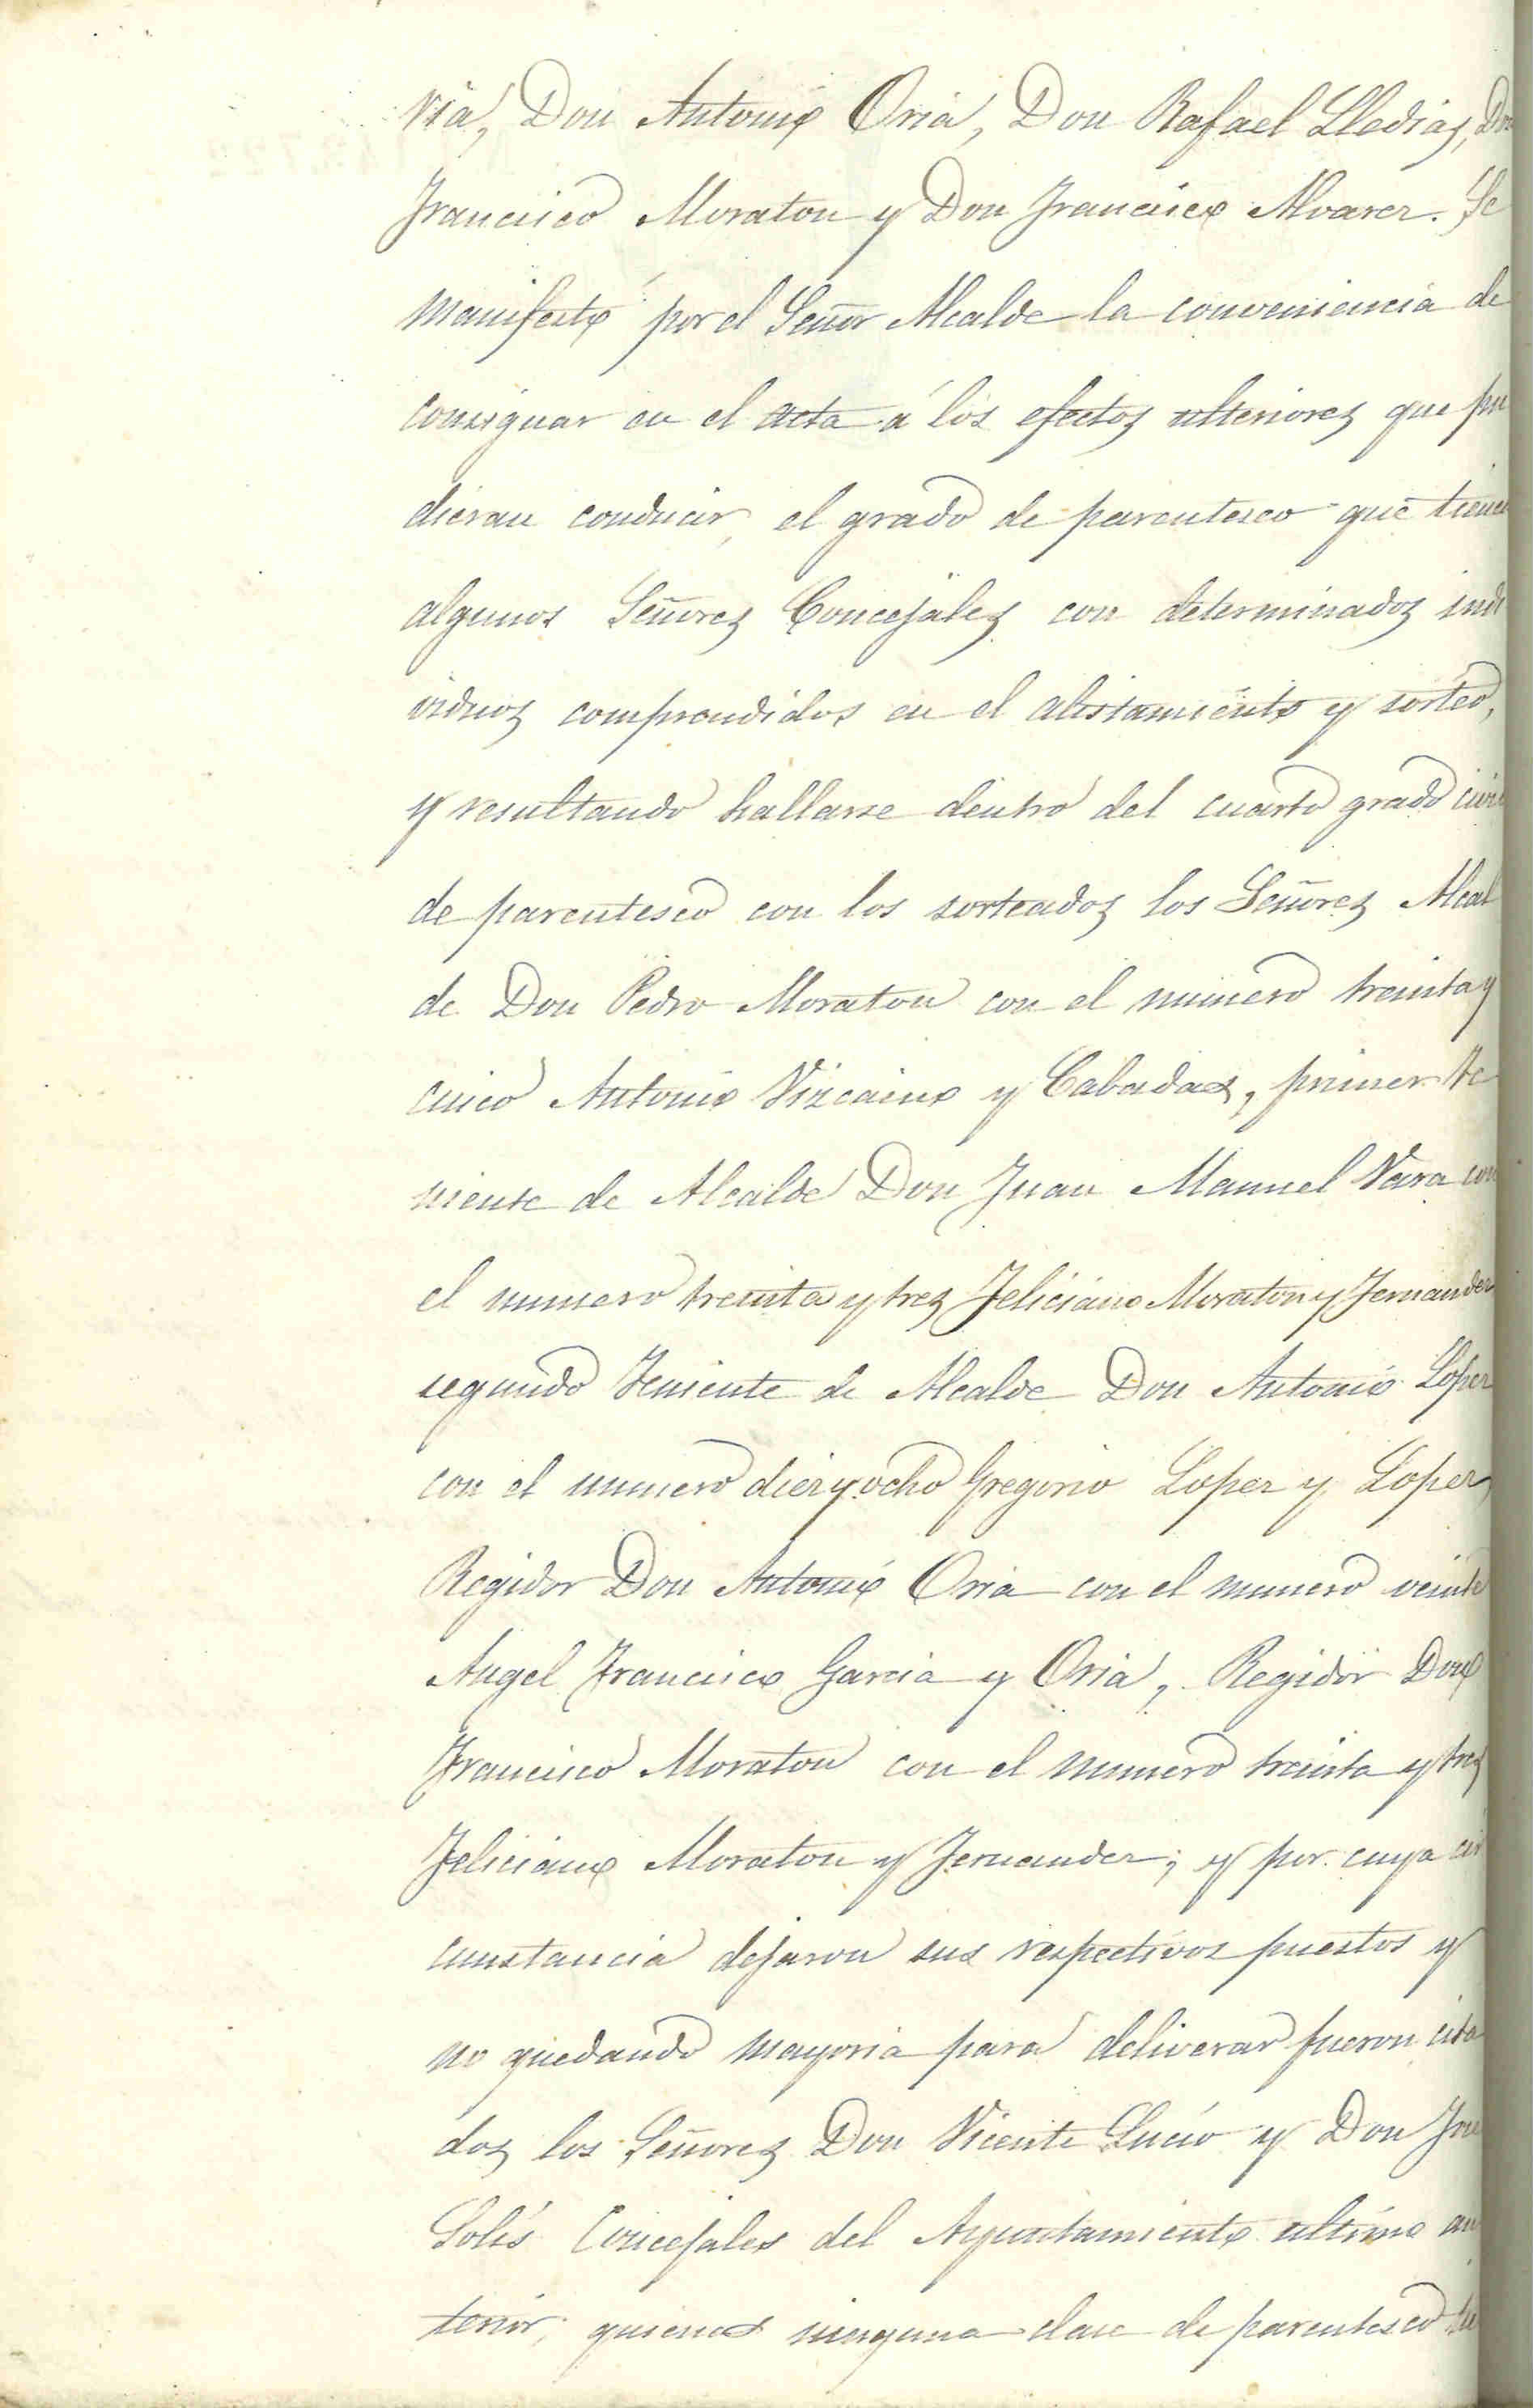 via, Don Antonio Oria, Don Rafael Lledias, Don
Francisco Moraton y Don Francisco Alvarez. Se
manifestó por el Señor Alcalde la conveniencia de
consignar en el acta á los efectos ulteriores que pu
dieran conducir, el grado de parentesco que tienen
algunos Señores Concejales con determinados indi
viduos comprendidos en el alistamiento y sorteo,
y resultando hallarse dentro del cuarto grado civil
de parentesco con los sorteados los Señores Alcal
de Don Pedro Moraton con el numero treinta y
cinco Antonio Vizcaino y Cabadas, primer Te
niente de Alcalde Don Juan Manuel Vara con
el numero treinta y tres Feliciano Moraton y Fernandez
segundo Teniente de Alcalde Don Antonio Lopez
con el numero diez y ocho Gregorio Lopez y Lopez,
Regidor Don Antonio Oria con el numero veinte
Angel Francisco Garcia y Oria, Regidor Don
Francisco Moraton con el numero treinta y tres
Feliciano Moraton y Fernandez; y por cuya cir
cunstancia dejaron sus respectivos puestos y
no quedando mayoria para deliverar fueron cita
dos los Señores Don Vicente Lucio y Don
Solís Concejales del Ayuntamiento ultimo an
terior, quienes ninguna clase de parentesco